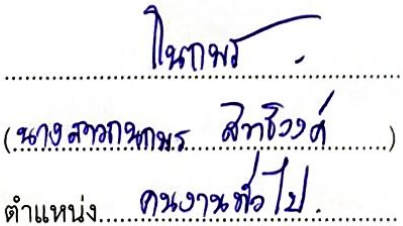 (นางสาวกนกพร สิทธิวงค์)
ตำแหน่ง คนงานทั่วไป.